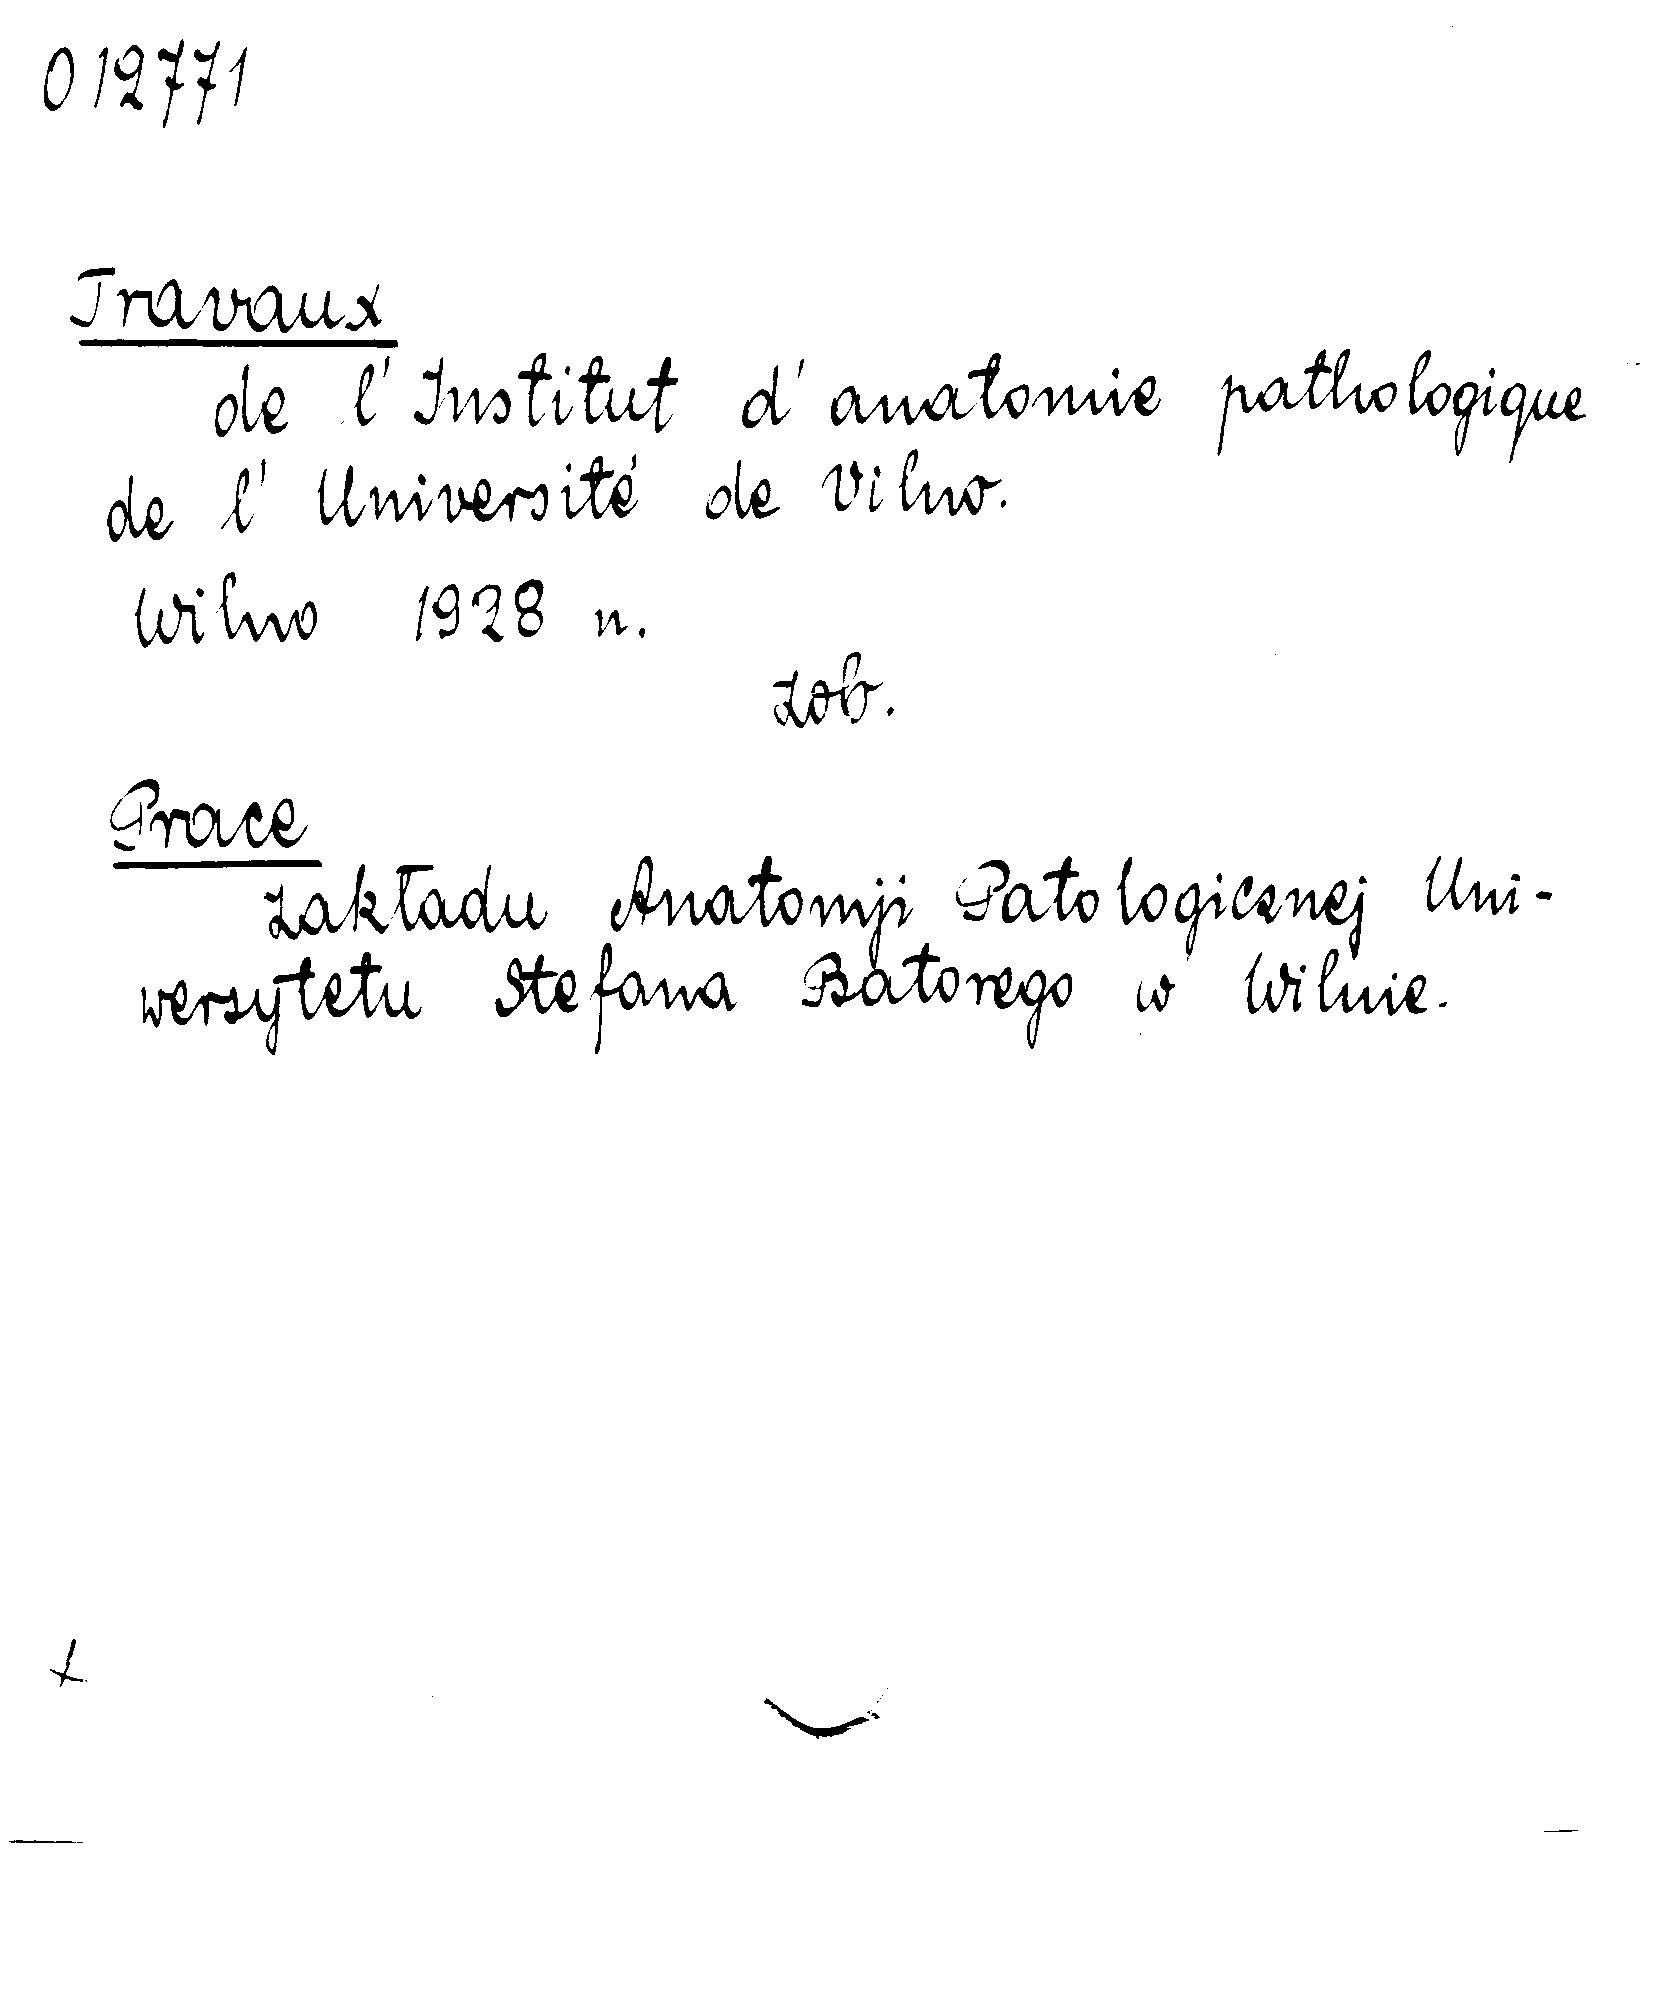 012771
Travaux
de l'Institut d'anatomie pathologique
de l'Université de Vilno.
Wilno 1928 n.
zob.
Prace
Zakładu Anatomji Patologicznej Uni-
wersytetu Stefana Batorego w Wilnie.